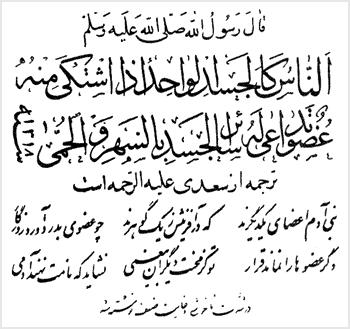 قَالَ رَسُولُ اللهِ صَلَّى اللهُ عَلَيْهِ وَسَلَّمَ
اَلنَّاسُ كَالجَسَدِ الوَاحِدِ اِذَا اشْتَكىٰ مِنْهُ
عُضْوٌ تَدَاعىٰ لَهُ سَائِرُ الجَسَدِ بِالسَّهَرِ وَ الحُمّىٰ
ترجمه از سعدی علیه الرحمه است
بنی آدم اعضای یکدیگرند که در آفرینش ز یک گوهرند چو عضوی بدرد آورد روزگار
دگر عضوها را نماند قرار تو کز محنت دیگران بیغمی نشاید که نامت نهند آدمی